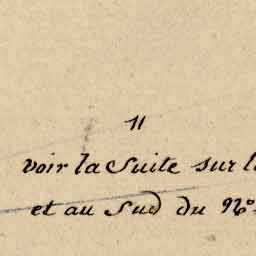 11
voir la Suite sur l
et au Sud du No.